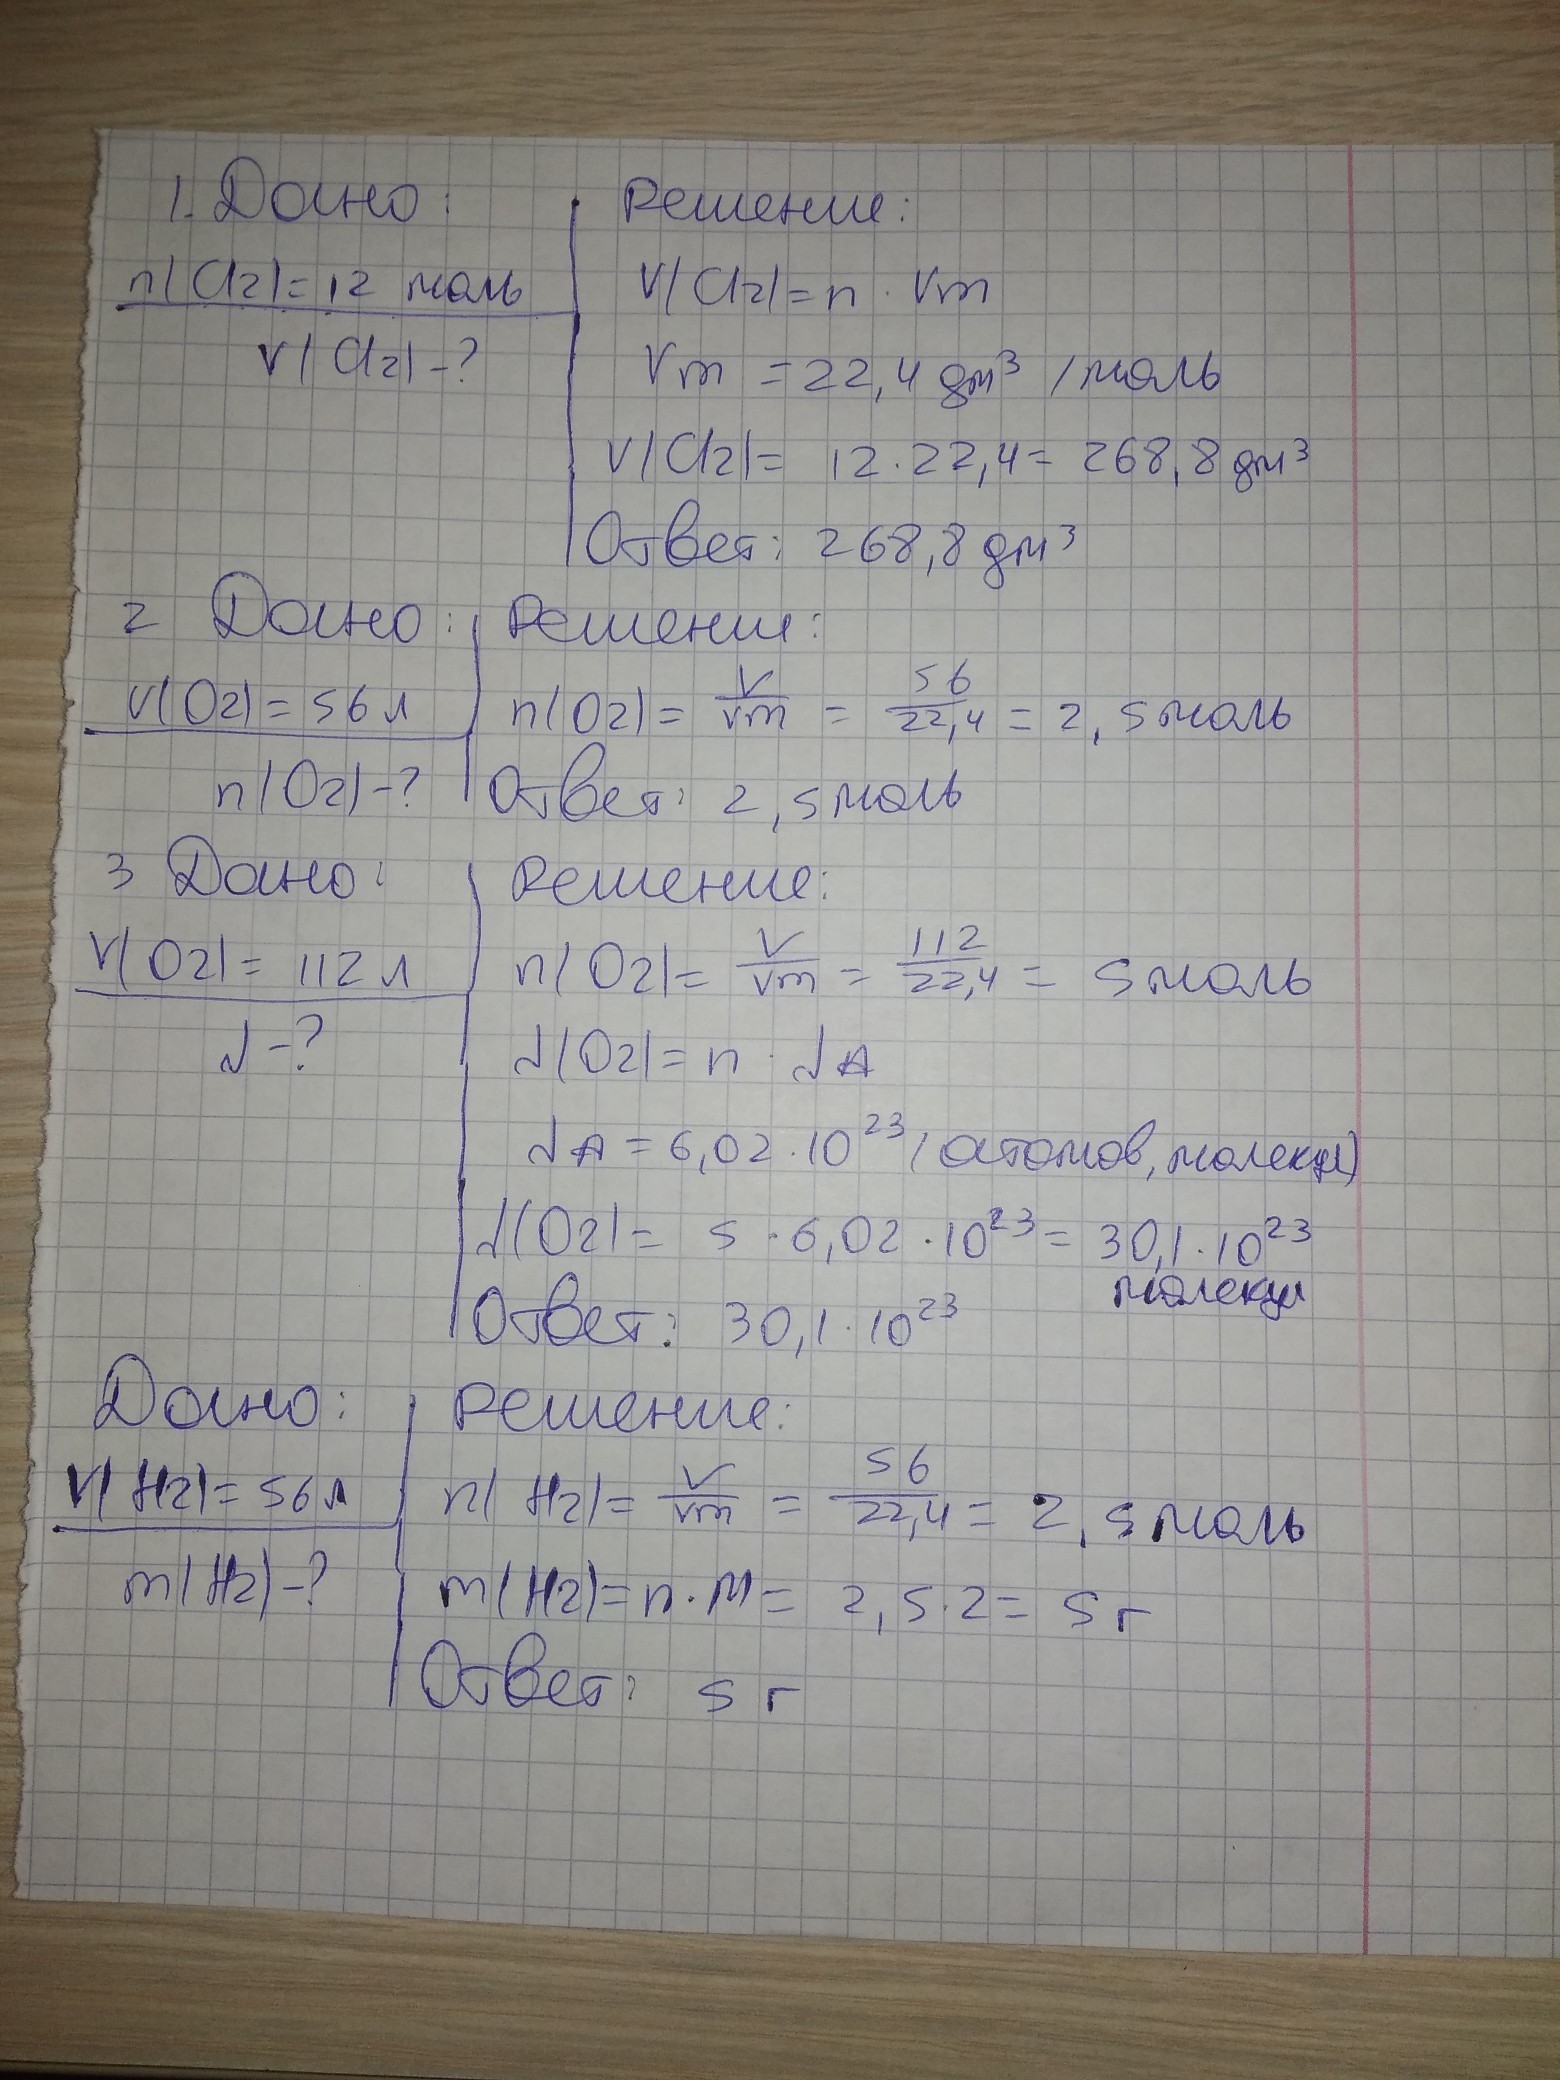 1. Дано:
n(Cl2)=12 моль
V(Cl2)-?
Решение:
V(Cl2)=n · Vm
Vm =22,4 дм³ /моль
V(Cl2)= 12·22,4= 268,8 дм³
Ответ: 268,8 дм³
2 Дано:
V(O2)=56 л
n(O2)-?
Решение:
n(O2)= V/Vm = 56/22,4 = 2,5 моль
Ответ: 2,5 моль
3 Дано:
V(O2)= 112 л
N-?
Решение:
n(O2)= V/Vm = 112/22,4 = 5 моль
N(O2)= n · NA
NA = 6,02·10²³ (атомов, молекул)
N(O2)= 5·6,02·10²³= 30,1·10²³
молекул
Ответ: 30,1·10²³
Дано:
V(H2)=56 л
m(H2)-?
Решение:
n(H2)= V/Vm = 56/22,4 = 2,5 моль
m(H2)=n·M= 2,5·2= 5 г
Ответ: 5 г